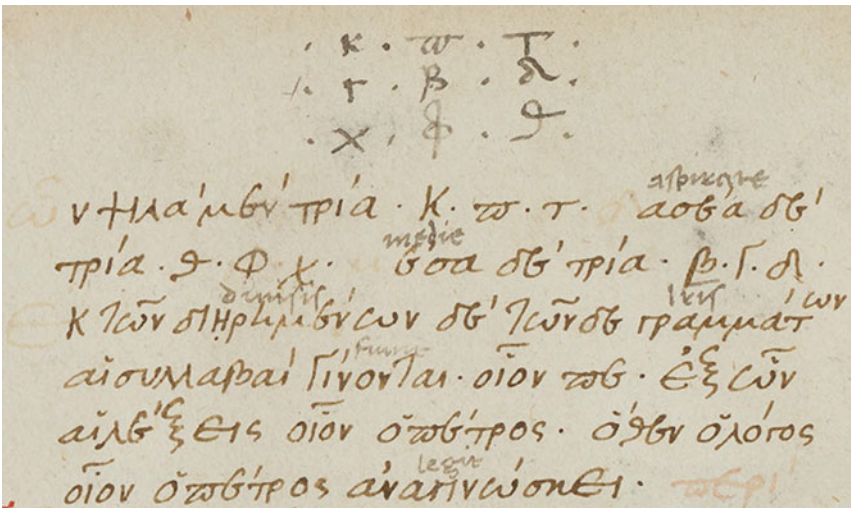 · κ · π · τ ·
· γ · β · δ ·
· χ · φ · θ ·
aspirate
ψηλὰ μὲν τρία · κ · π · τ · δασέα δὲ
medie
τρία · θ · φ χ · μέσα δὲ τρία · β · γ · δ ·
divisis lris
κ τῶν διῃρημένων δὲ τῶνδε γραμμάτων
fiunt
αἱ συλλαβαὶ γίνονται · οἷον πε · ἐξ ὧν
αἱ λέξεις οἷον ὁ πέτρος · ὅθεν ὁ λόγος
legit
οἷον ὁ πέτρος ἀναγινώσκει · περὶ